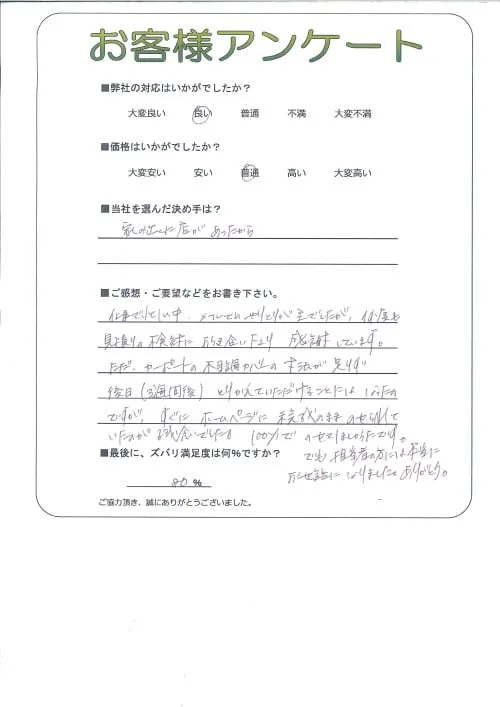 お客様アンケート
■弊社の対応はいかがでしたか？
大変良い 良い 普通 不満 大変不満
■価格はいかがでしたか？
大変安い 安い 普通 高い 大変高い
■当社を選んだ決め手は？
家の近くに店があったから
■ご感想・ご要望などをお書き下さい。
仕事で忙しい中、メールでのやりとりが主でしたが、何度も
見積りの検討に お付き合い下さり 感謝しています。
ただ、カーポートの木目調カバーの寸法が足りず
後日(3週間後) とりかえていただけることにはなったの
ですが、すぐに ホームページに 未完成のまま のせられて
いたのが 100%で のせてほしかったです。
でも担当者の方には本当に
お世話になりました。ありがとう。
■最後に、ズバリ満足度は何%ですか？
80 %
ご協力頂き、誠にありがとうございました。